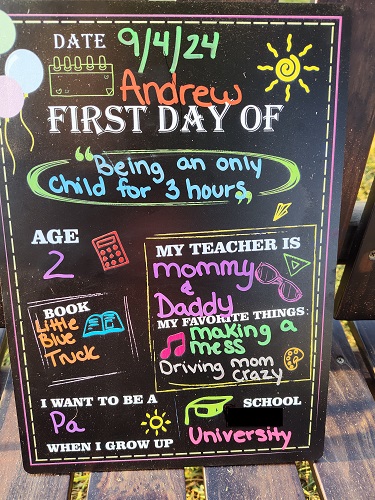 DATE 9/4/24
Andrew
FIRST DAY OF
"Being an only
child for 3 hours"
AGE
2
MY TEACHER IS
mommy
&
Daddy
BOOK
Little
Blue
Truck
MY FAVORITE THINGS:
making a
mess
Driving mom
crazy
I WANT TO BE A
Pa
WHEN I GROW UP
SCHOOL
University